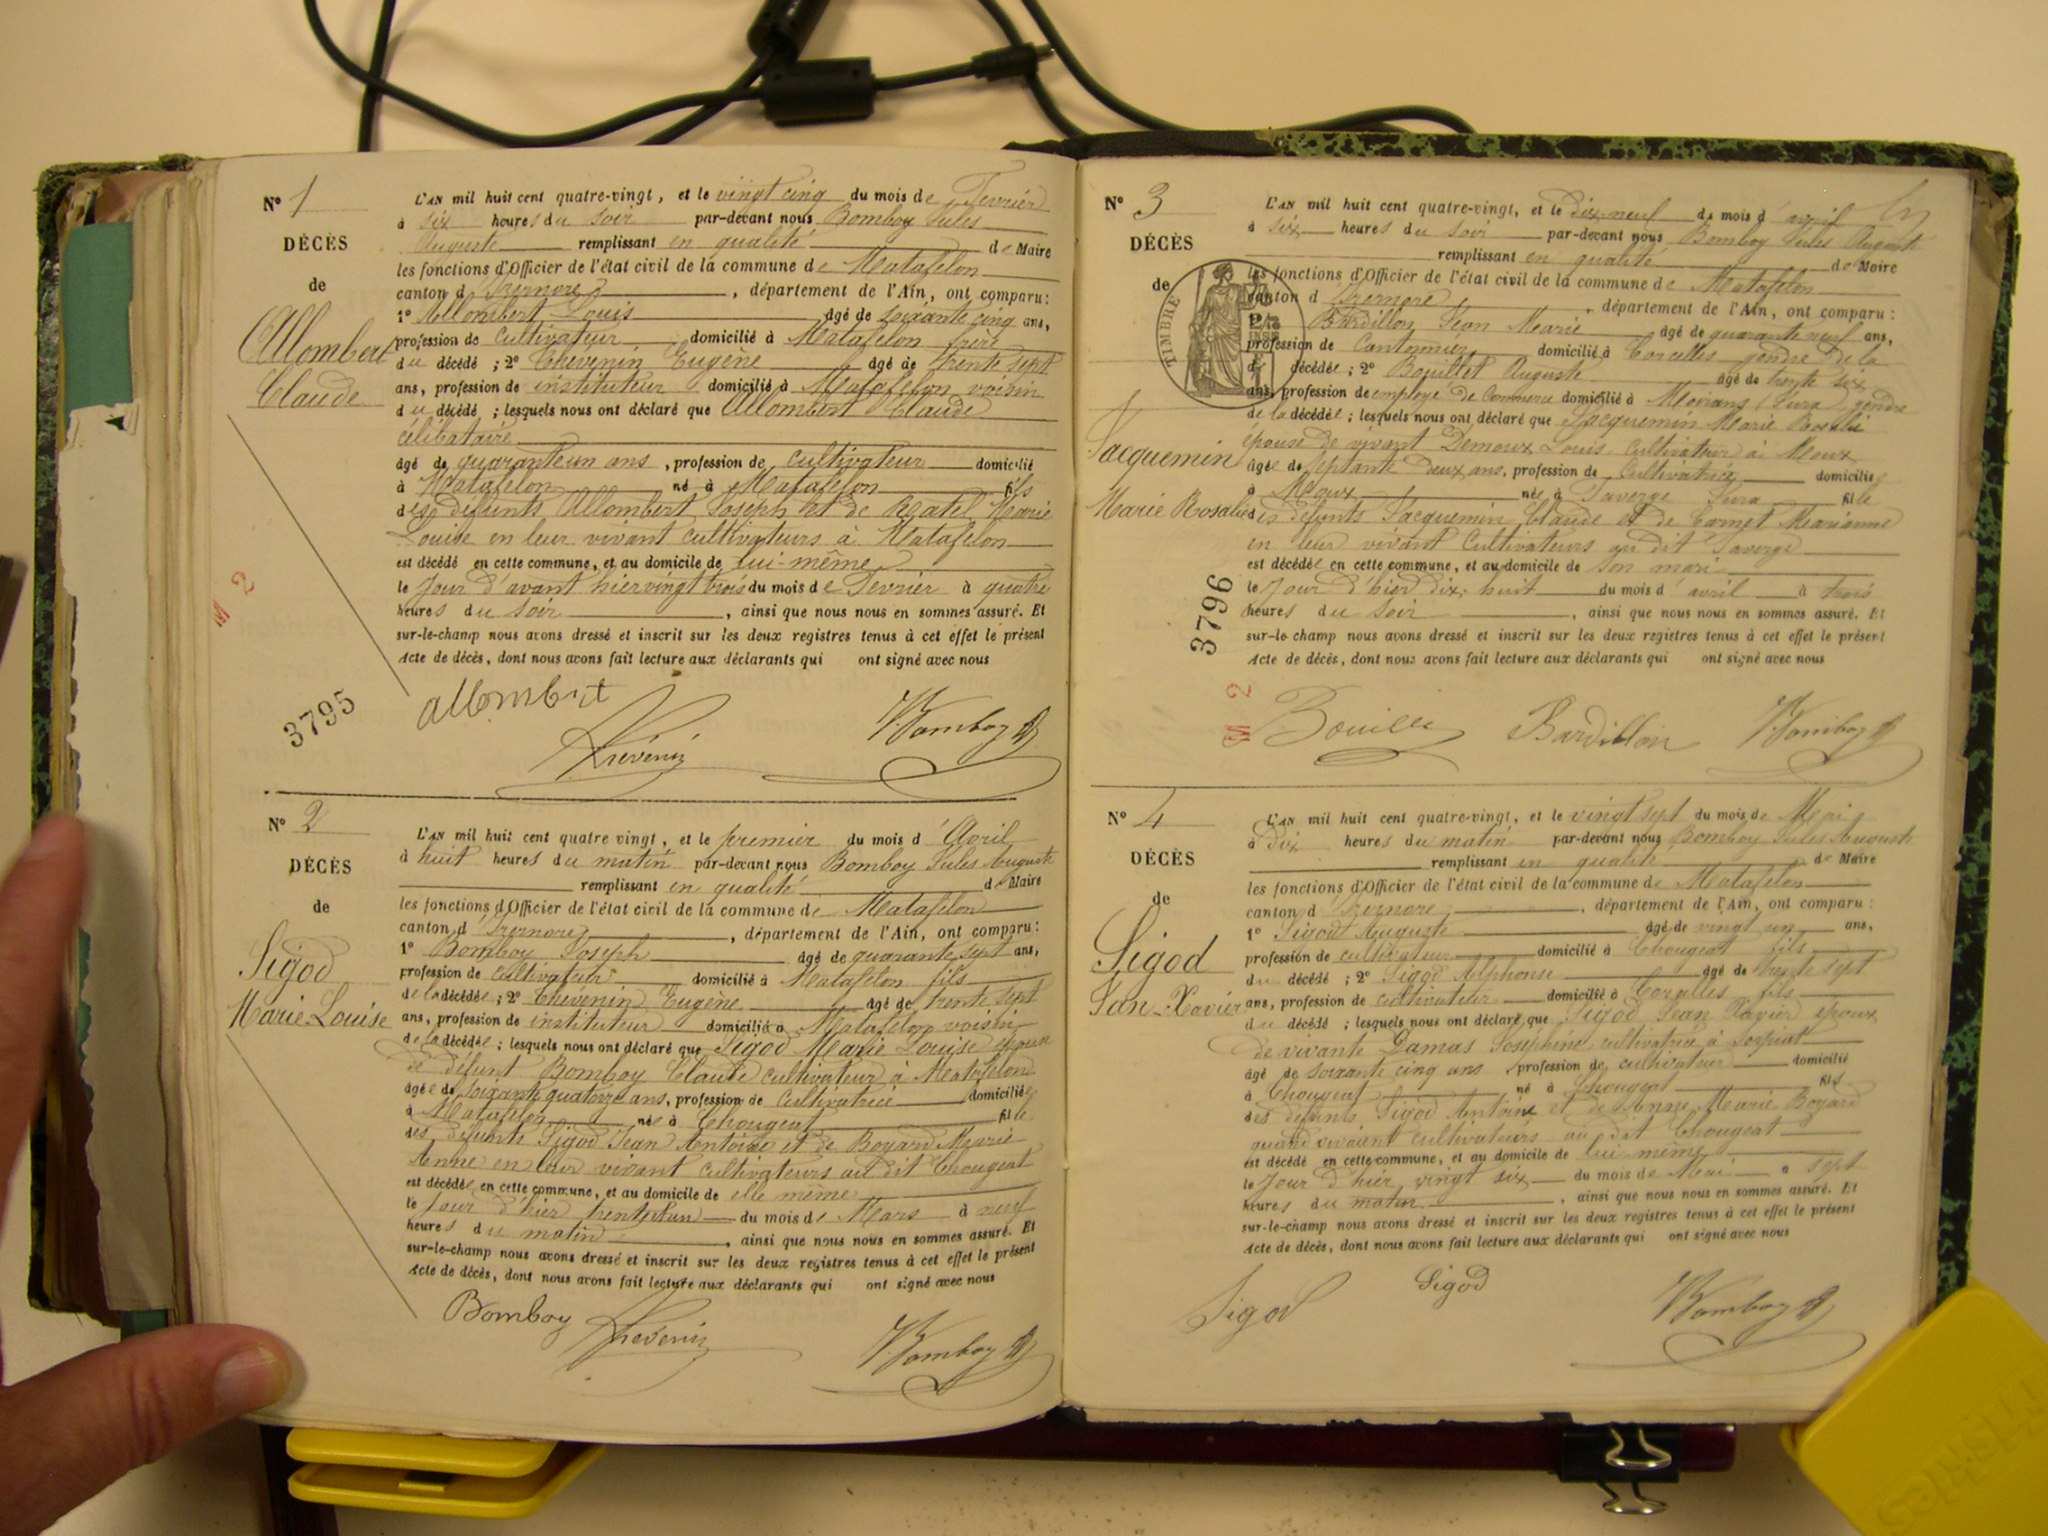 N° 1
DÉCÈS
de
Allombert
Claude
L'AN mil huit cent quatre-vingt, et le vingt cinq du mois de Fevrier
à six heures du soir par-devant nous Bomboy Jules
Auguste remplissant en qualité de Maire
les fonctions d'Officier de l'état civil de la commune de Matafelon
canton d'Izernore, département de l'Ain, ont comparu :
1° Allombert Louis âgé de soixante cinq ans,
profession de cultivateur domicilié à Matafelon frère
du décédé ; 2° Thevenin Eugène âgé de trente sept
ans, profession de instituteur domicilié à Matafelon voisin
du décédé ; lesquels nous ont déclaré que Allombert Claude
célibataire
âgé de quarante un ans, profession de cultivateur domicilié
à Matafelon né à Matafelon fils
des défunts Allombert Joseph et de Ratel Marie
Louise en leur vivant cultivateurs à Matafelon
est décédé en cette commune, et au domicile de lui-même
le Jour d'avant hier vingt trois du mois de Fevrier à quatre
heures du soir, ainsi que nous nous en sommes assuré. Et
sur-le-champ nous avons dressé et inscrit sur les deux registres tenus à cet effet le présent
Acte de décès, dont nous avons fait lecture aux déclarants qui ont signé avec nous
allombert
Thévenin
Bomboy
M 2
3795
N° 2
DÉCÈS
de
Sigod
Marie Louise
L'AN mil huit cent quatre vingt, et le premier du mois d'Avril
à huit heures du matin par-devant nous Bomboy Jules Auguste
remplissant en qualité de Maire
les fonctions d'Officier de l'état civil de la commune de Matafelon
canton d'Izernore, département de l'Ain, ont comparu :
1° Bomboy Joseph âgé de quarante sept ans,
profession de cultivateur domicilié à Matafelon fils
de la décédée ; 2° Thévenin Eugène âgé de trente sept
ans, profession de instituteur domicilié à Matafelon voisin
de la décédée ; lesquels nous ont déclaré que Sigod Marie Louise épouse
de défunt Bomboy Claude cultivateur à Matafelon
âgée de soixante quatorze ans, profession de cultivatrice domiciliée
à Matafelon née à Chougeat fille
des défunts Sigod Jean Antoine et de Boyard Marie
Anne en leur vivant cultivateurs au dit Chougeat
est décédée en cette commune, et au domicile de elle même
le Jour d'hier trente et un du mois de Mars à neuf
heures du matin, ainsi que nous nous en sommes assuré. Et
sur-le-champ nous avons dressé et inscrit sur les deux registres tenus à cet effet le présent
Acte de décès, dont nous avons fait lecture aux déclarants qui ont signé avec nous
Bomboy
Thévenin
Bomboy
N° 3
DÉCÈS
de
TIMBRE
Jacquemin
Marie Rosalie
L'AN mil huit cent quatre-vingt, et le dix neuf du mois d'avril
à six heures du soir par-devant nous Bomboy Jules Auguste
remplissant en qualité de Maire
les fonctions d'Officier de l'état civil de la commune de Matafelon
canton d'Izernore, département de l'Ain, ont comparu :
Bardillon Jean Marie âgé de quarante neuf ans,
profession de Cantonnier domicilié à Corcelles gendre de la
décédée ; 2° Bouillet Auguste âgé de trente six
ans, profession de employé de Commerce domicilié à Morians Jura gendre
de la décédée ; lesquels nous ont déclaré que Jacquemin Marie Rosalie
épouse de vivant Demoux Louis cultivateur à Moux
âgée de septante deux ans, profession de Cultivatrice domiciliée
à Moux née à Taverge Jura fille
des défunts Jacquemin Claude et de Carmet Marianne
en leur vivant Cultivateurs au dit Taverge
est décédée en cette commune, et au domicile de son mari
le Jour d'hier dix huit du mois d'avril à trois
heures du soir, ainsi que nous nous en sommes assuré. Et
sur-le-champ nous avons dressé et inscrit sur les deux registres tenus à cet effet le présent
Acte de décès, dont nous avons fait lecture aux déclarants qui ont signé avec nous
Bardillon
Bomboy
3796
M 2
N° 4
DÉCÈS
de
Sigod
Jean-Xavier
L'AN mil huit cent quatre-vingt, et le vingt sept du mois de Mai
à Dix heures du matin par-devant nous Bomboy Jules Auguste
remplissant en qualité de Maire
les fonctions d'Officier de l'état civil de la commune de Matafelon
canton d'Izernore, département de l'Ain, ont comparu :
1° Sigod Auguste âgé de vingt un ans,
profession de cultivateur domicilié à Chougeat fils
du décédé ; 2° Sigod Alphonse âgé de trente sept
ans, profession de cultivateur domicilié à Corcelles fils
du décédé ; lesquels nous ont déclaré que Sigod Jean Xavier époux
de vivante Damas Josephine cultivatrice à Sorpiat
âgé de soixante cinq ans profession de cultivateur domicilié
à Chougeat né à Chougeat fils
des défunts Sigod Antoine et de Anne Marie Boyard
quand vivaient cultivateurs au dit Chougeat
est décédé en cette commune, et au domicile de lui même
le Jour d'hier vingt six du mois de Mai à sept
heures du matin, ainsi que nous nous en sommes assuré. Et
sur-le-champ nous avons dressé et inscrit sur les deux registres tenus à cet effet le présent
Acte de décès, dont nous avons fait lecture aux déclarants qui ont signé avec nous
Sigod
Sigod
Bomboy